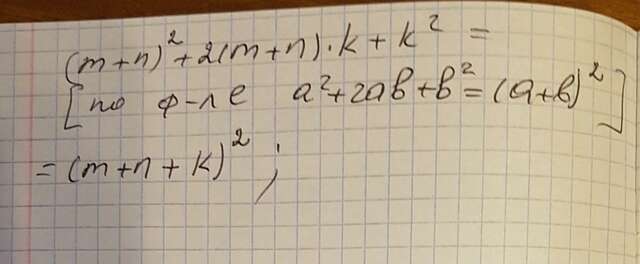 (m+n)²+2(m+n)·k+k²=
[по ф-ле a²+2ab+b²=(a+b)²]
=(m+n+k)²;